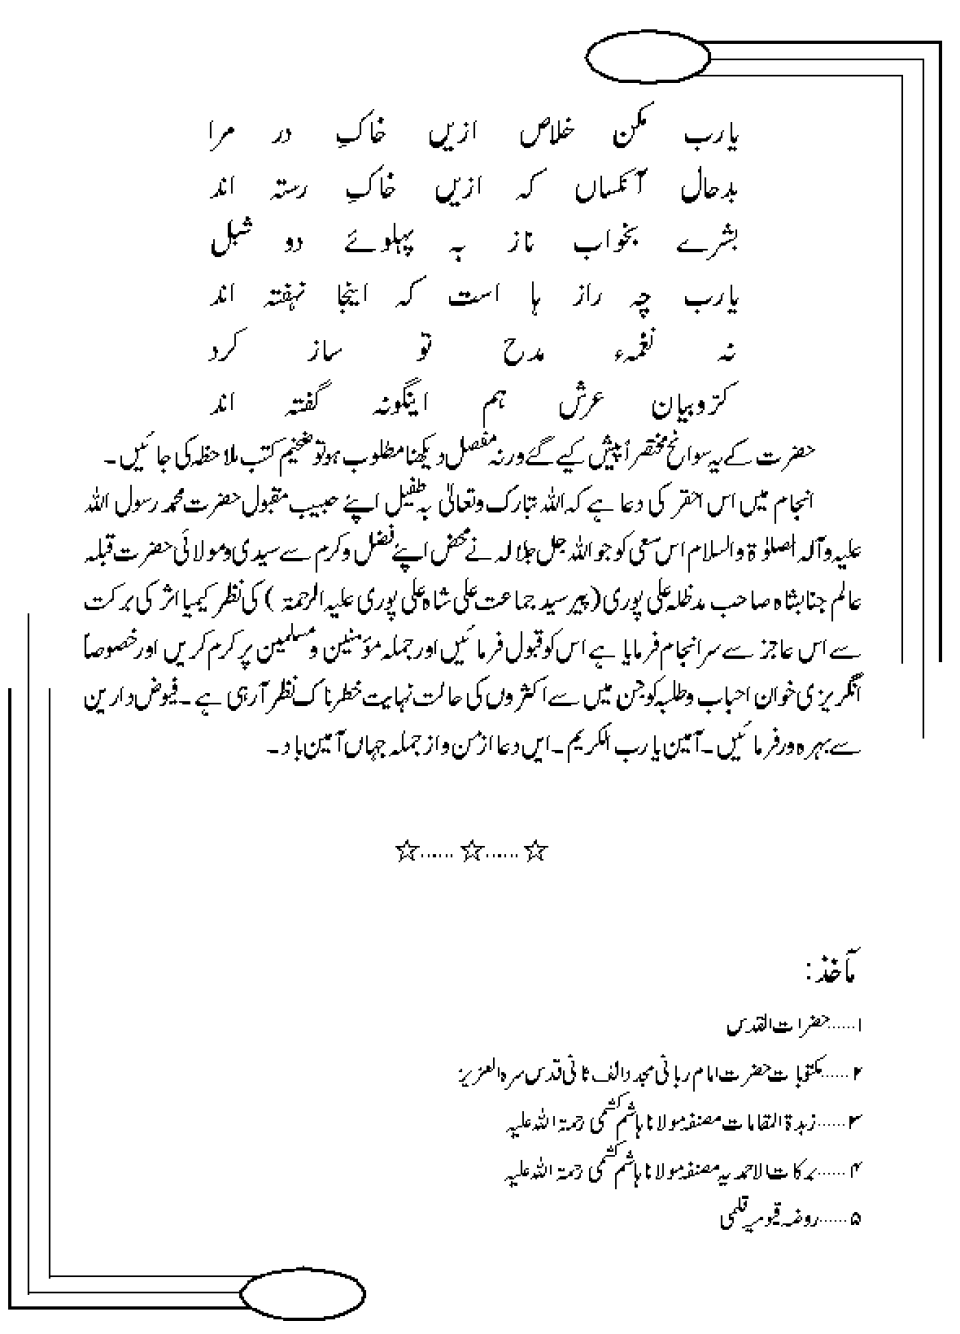 یارب مکن خلاص ازیں خاکِ در مرا
بدحال آنکساں کہ ازیں خاکِ رستہ اند
بشرے بخواب ناز بہ پہلوئے دو شبل
یارب چہ راز ہا است کہ اینجا نہفتہ اند
نہ نغمہء مدح تو ساز کرد
کرّوبیان عرش ہم اینگونہ گفتہ اند
حضرت کے یہ سوانح مختصراً پیش کیے گے ورنہ مفصل دیکھنا مطلوب ہو تو ضخیم کتب ملاحظہ کی جائیں۔
انجام میں اس احقر کی دعا ہے کہ اللہ تبارک وتعالیٰ بہ طفیل اپنے حبیب مقبول حضرت محمد رسول اللہ
علیہ وآلہ الصلوٰۃ والسلام اس سعی کو جو اللہ جل جلالہ نے محض اپنے فضل وکرم سے سیدی ومولائی حضرت قبلہ
عالم جناب شاہ صاحب مدظلہ علی پوری (پیر سید جماعت علی شاہ علی پوری علیہ الرحمۃ ) کی نظر کیمیا اثر کی برکت
سے اس عاجز سے سرانجام فرمایا ہے اس کو قبول فرمائیں اور جملہ مؤمنین و مسلمین پر کرم کریں اور خصوصاً
انگریزی خوان احباب وطلبہ کو جن میں سے اکثروں کی حالت نہایت خطرناک نظر آرہی ہے ۔ فیوض دارین
سے بہرہ ور فرمائیں ۔ آمین یا رب الکریم ۔ ایں دعا از من و از جملہ جہاں آمین باد ۔
☆...... ☆...... ☆
مآخذ:
۱......حضرات القدس
۲......مکتوبات حضرت امام ربانی مجدد الف ثانی قدس سرہ العزیز
۳......زبدۃ المقامات مصنفہ مولانا ہاشم کشمی رحمۃ اللہ علیہ
۴......برکات الاحمدیہ مصنفہ مولانا ہاشم کشمی رحمۃ اللہ علیہ
۵......روضہ قیومیہ قلمی